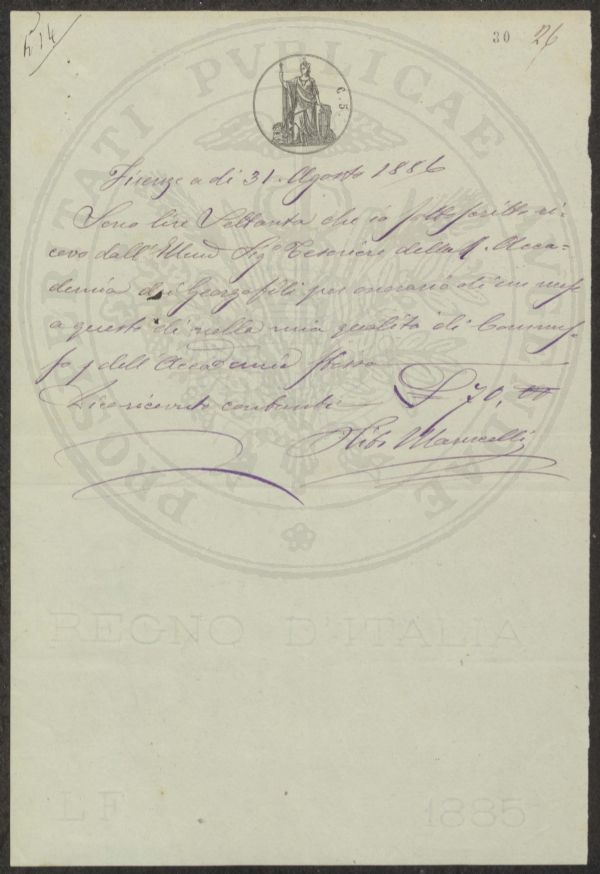 N 14
30 26
C. 5.
PROSPERITATI PVBLICAE AVGVSTAE
Firenze a dì 31. Agosto 1886
Sono lire Settanta che io sottoscritto ri-
cevo dall' Illmo Sigr Tesoriere della R. Acca-
demia dei Georgofili per onorario di un mese
a questo dì nella mia qualità di Commes-
so dell' Accademia stessa
Dico ricevute contanti £ 70, 00
Marucelli
REGNO D'ITALIA
LF 1885